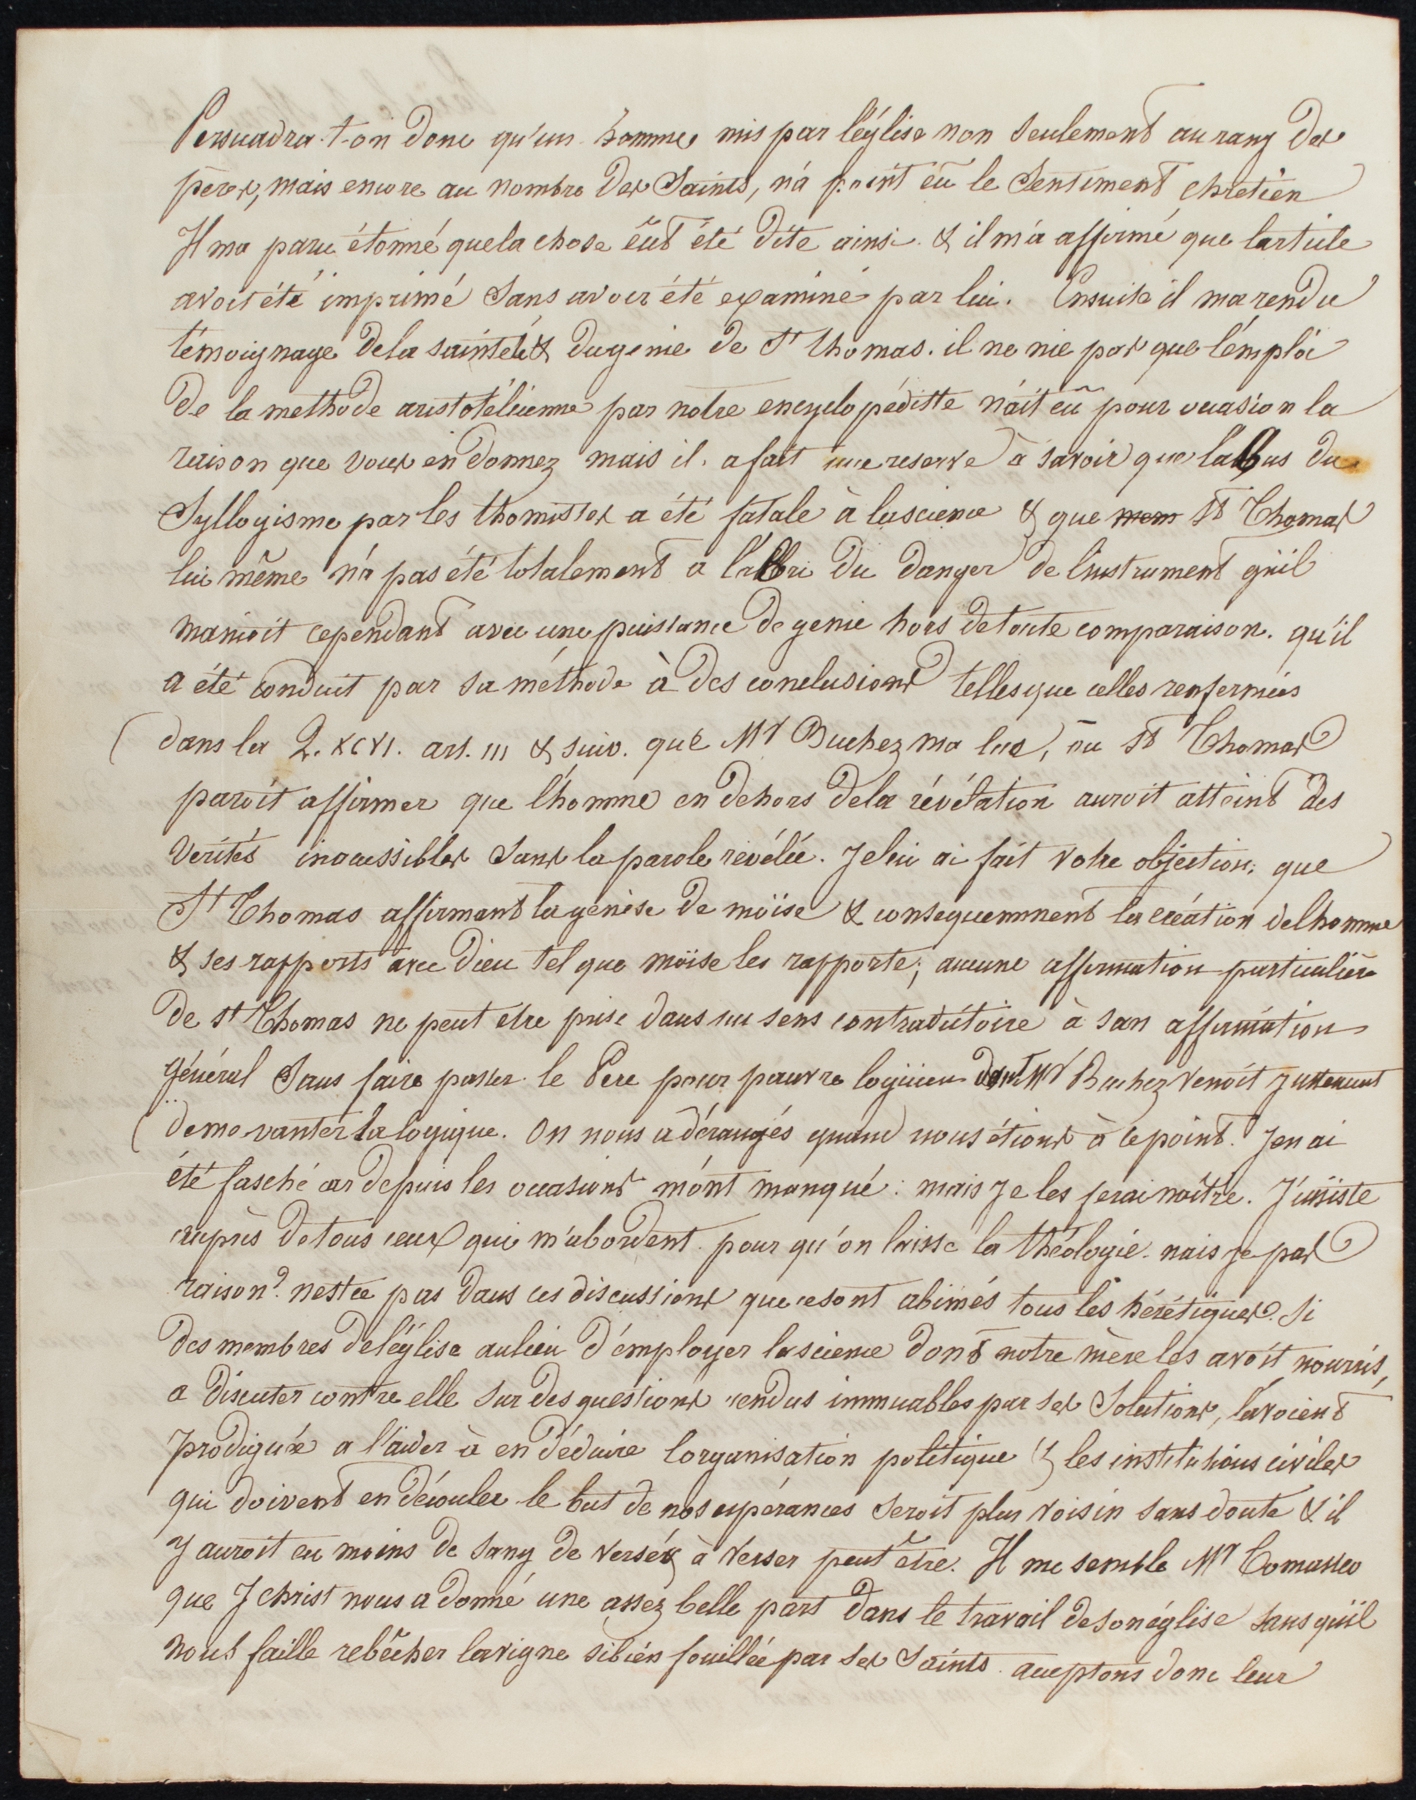 Persuadra-t-on donc qu'un homme mis par l'église non seulement au rang des
pères, mais encore au nombre des Saints, n'a point eû le Sentiment chrétien
Il m'a paru étonné que la chose eût été dite ainsi. & il m'a affirmé que l'article
avoit été imprimé Sans avoir été examiné par lui. Ensuite il m'a rendu
témoignage de la sainteté & du génie de St thomas. il ne nie pas que l'emploi
de la methode aristotélicienne par notre encyclopédiste n'ait eû pour occasion la
raison que vous en donnez mais il a fait une reserve à savoir que l'abus du
Syllogisme par les thomistes a été fatale à la science & que mem St Thomas
lui même n'a pas été totalement à l'abbri du danger de l'instrument qu'il
manioit cependant avec une puissance de genie hors de toute comparaison. qu'il
a été conduit par sa méthode à des conclusions telles que celles renfermées
dans la Q. XCVI. art. III & suiv. que Mr Buchez m'a lue, ou St Thomas
paroît affirmer que l'homme en dehors de la révélation auroit atteint des
Verités inaccessibles Sans la parole revélée. Je lui ai fait votre objection; que
St Thomas affirmant la génèse de moïse & consequemment la création de l'homme
& ses rapports avec Dieu tel que moïse les rapporte; aucune affirmation particulière
de st Thomas ne peut etre prise dans un sens contradictoire à son affirmation
général Sans faire passer le Père pour pauvre logicien dont Mr Buchez venoit justement
de me vanter la logique. On nous a dérangés quand nous étions à ce point. J'en ai
été fasché car depuis les occasions m'ont manqué: mais je les ferai naître. J'insiste
auprès de tous ceux qui m'abordent pour qu'on laisse la théologie. n'ais je pas
raison? n'est ce pas dans ces discussions que ce sont abimés tous les hérétiques? Si
des membres de l'église au lieu d'employer la science dont notre mère les avoit nourris,
a discuter contre elle Sur des questions rendus immuables par ses Solutions, l'avoient
prodiguée a l'aider à en déduire l'organisation politique & les institutions civiles
qui doivent en découler le but de nos espérances seroit plus voisin sans doute & il
y auroit eu moins de sang de versé & à verser peut être. Il me semble Mr Tomasseo
que J christ nous a donné une assez belle part dans le travail de son église sans qu'il
nous faille rebêcher la vigne si bien fouillée par ses Saints. acceptons donc leur